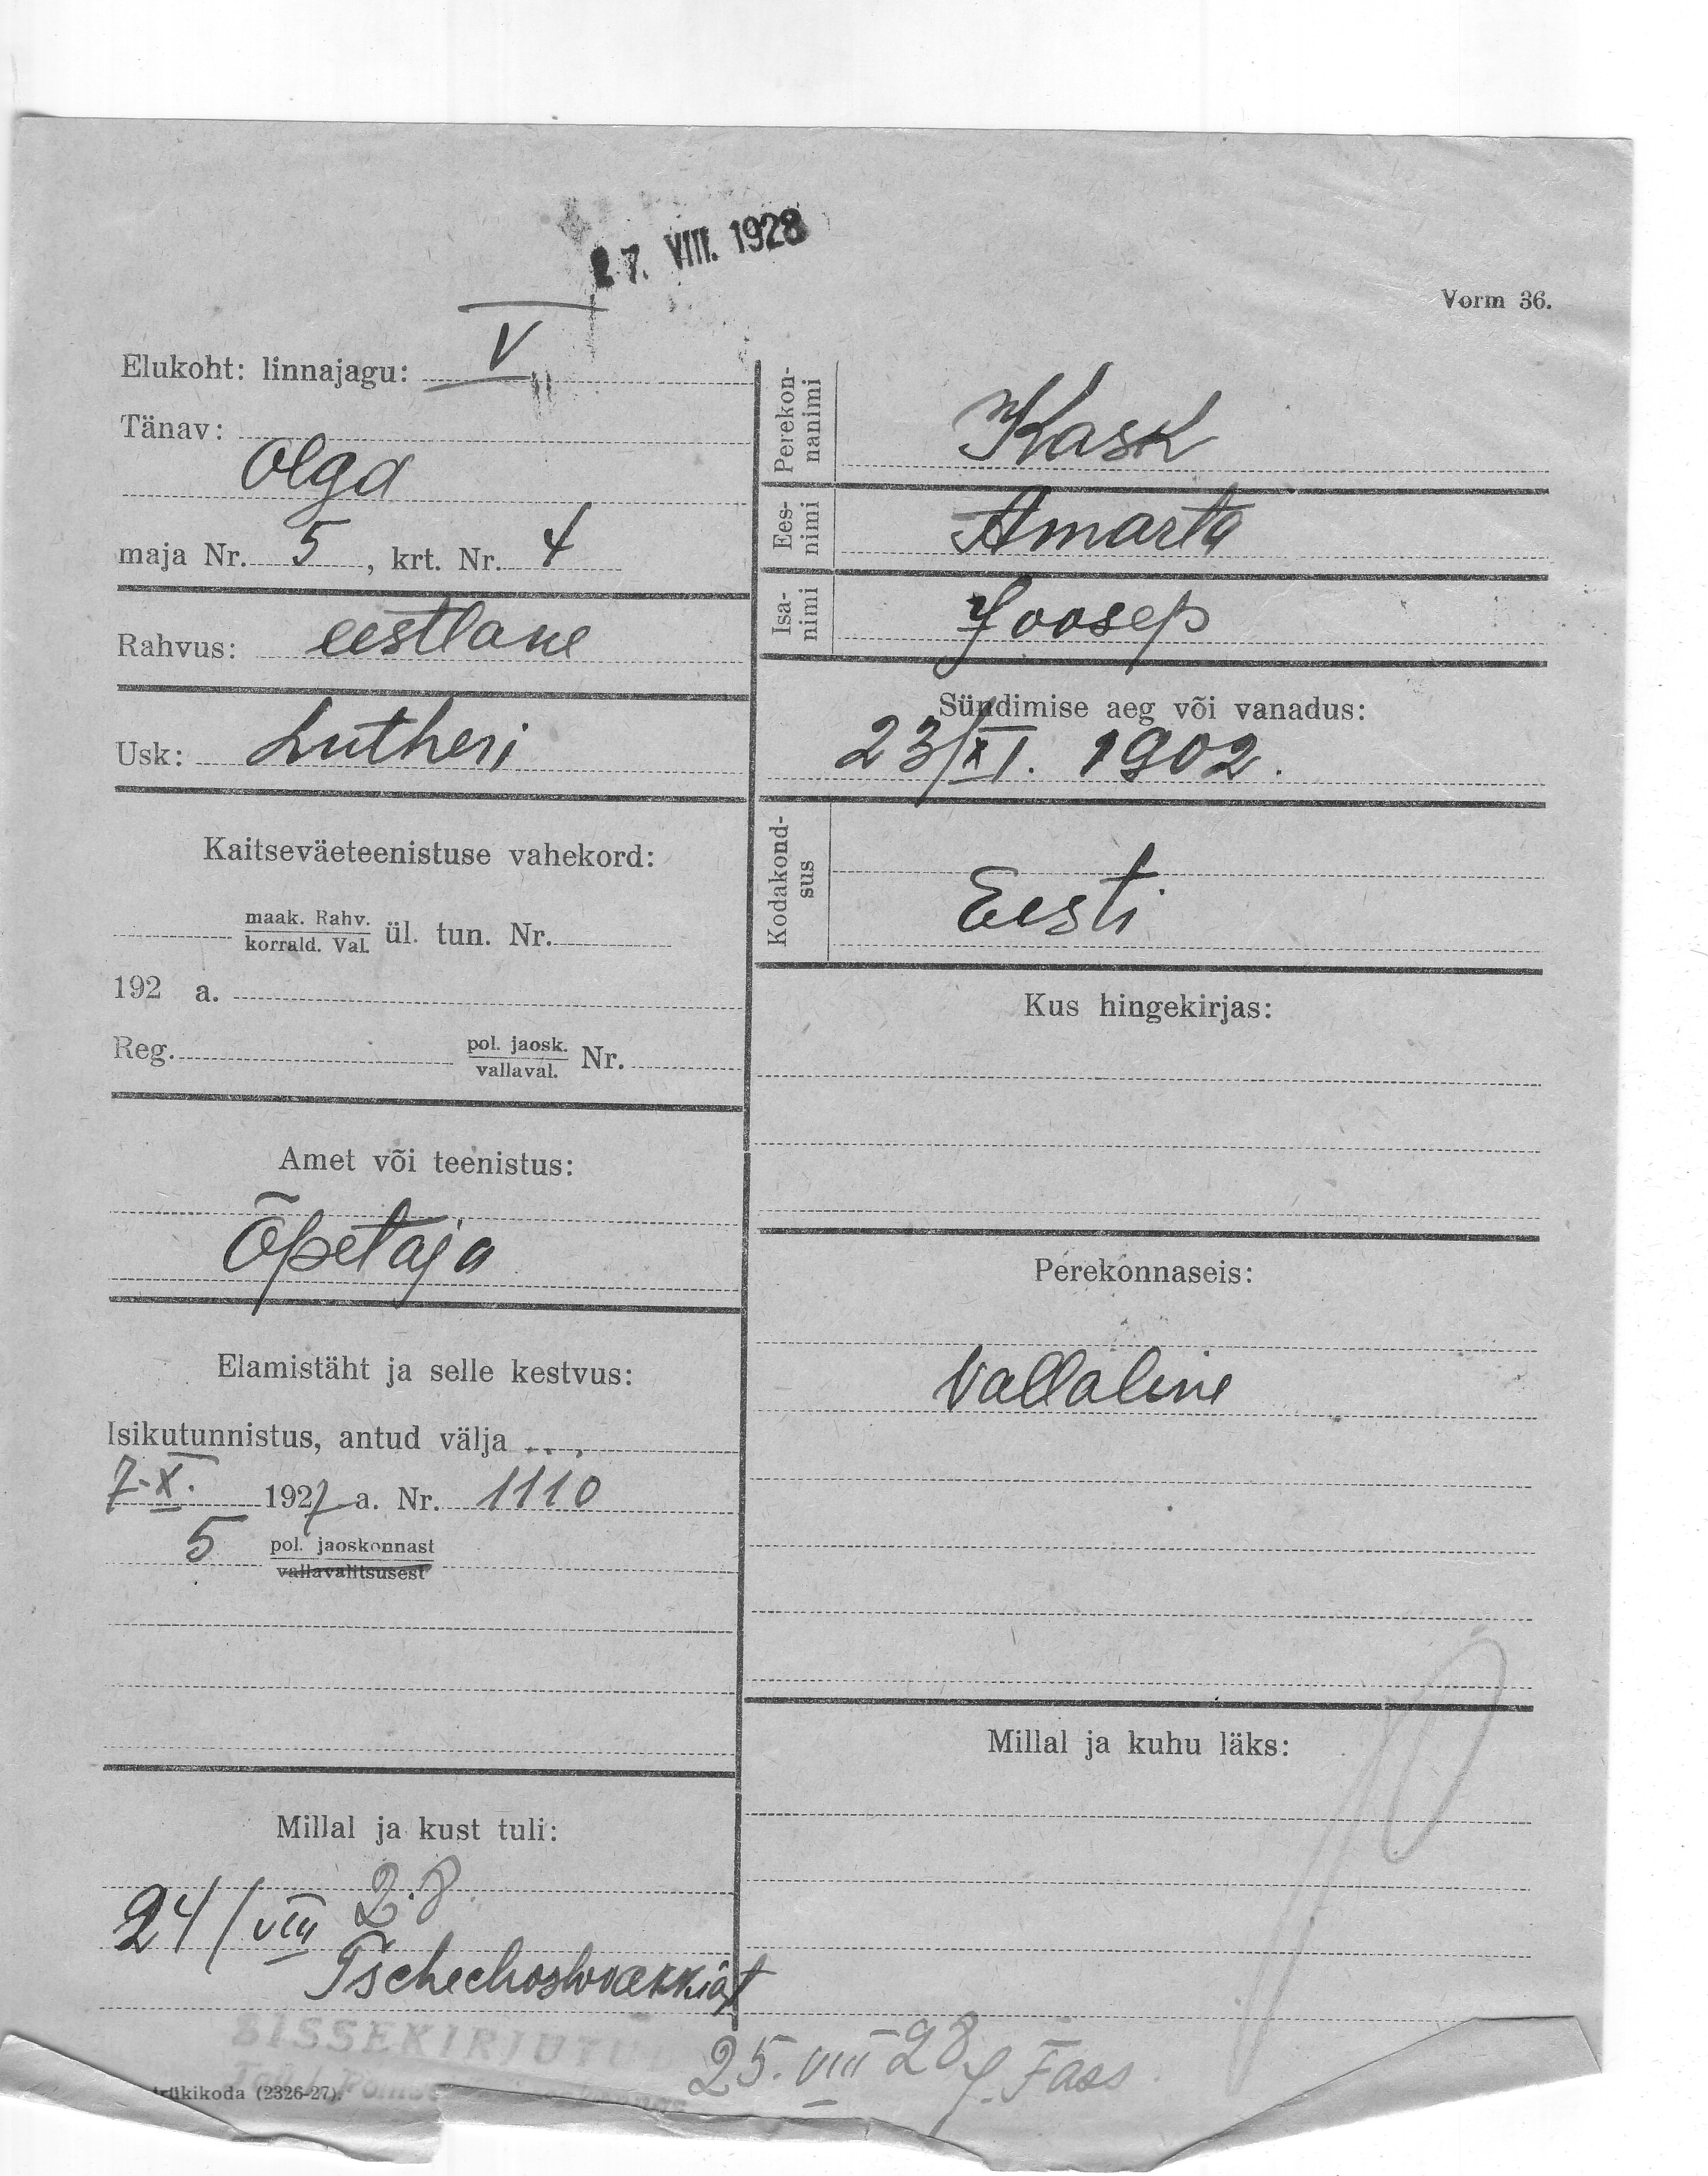 27. VIII. 1928
Vorm 36.
Elukoht: linnajagu: V
Tänav:
Olga
maja Nr. 5, krt. Nr. 4
Rahvus: eestlane
Usk: Lutheri
Kaitseväeteenistuse vahekord:
maak. Rahv.
korrald. Val. ül. tun. Nr.
192 a.
Reg. pol. jaosk.
vallaval. Nr.
Amet või teenistus:
Õpetaja
Elamistäht ja selle kestvus:
Isikutunnistus, antud välja
7-X. 1927 a. Nr. 1110
5 pol. jaoskonnast
vallavalitsusest
Millal ja kust tuli:
24/VIII 28.
Perekon-
nanimi
Kask
Ees-
nimi
Amarta
Isa-
nimi
Joosep
Sündimise aeg või vanadus:
23/XI. 1902.
Kodakond-
sus
Eesti
Kus hingekirjas:
Perekonnaseis:
Vallaline
Millal ja kuhu läks:
SISSEKIRJUTU
25. VIII 28 J. Fass
rükikoda (2326-27).